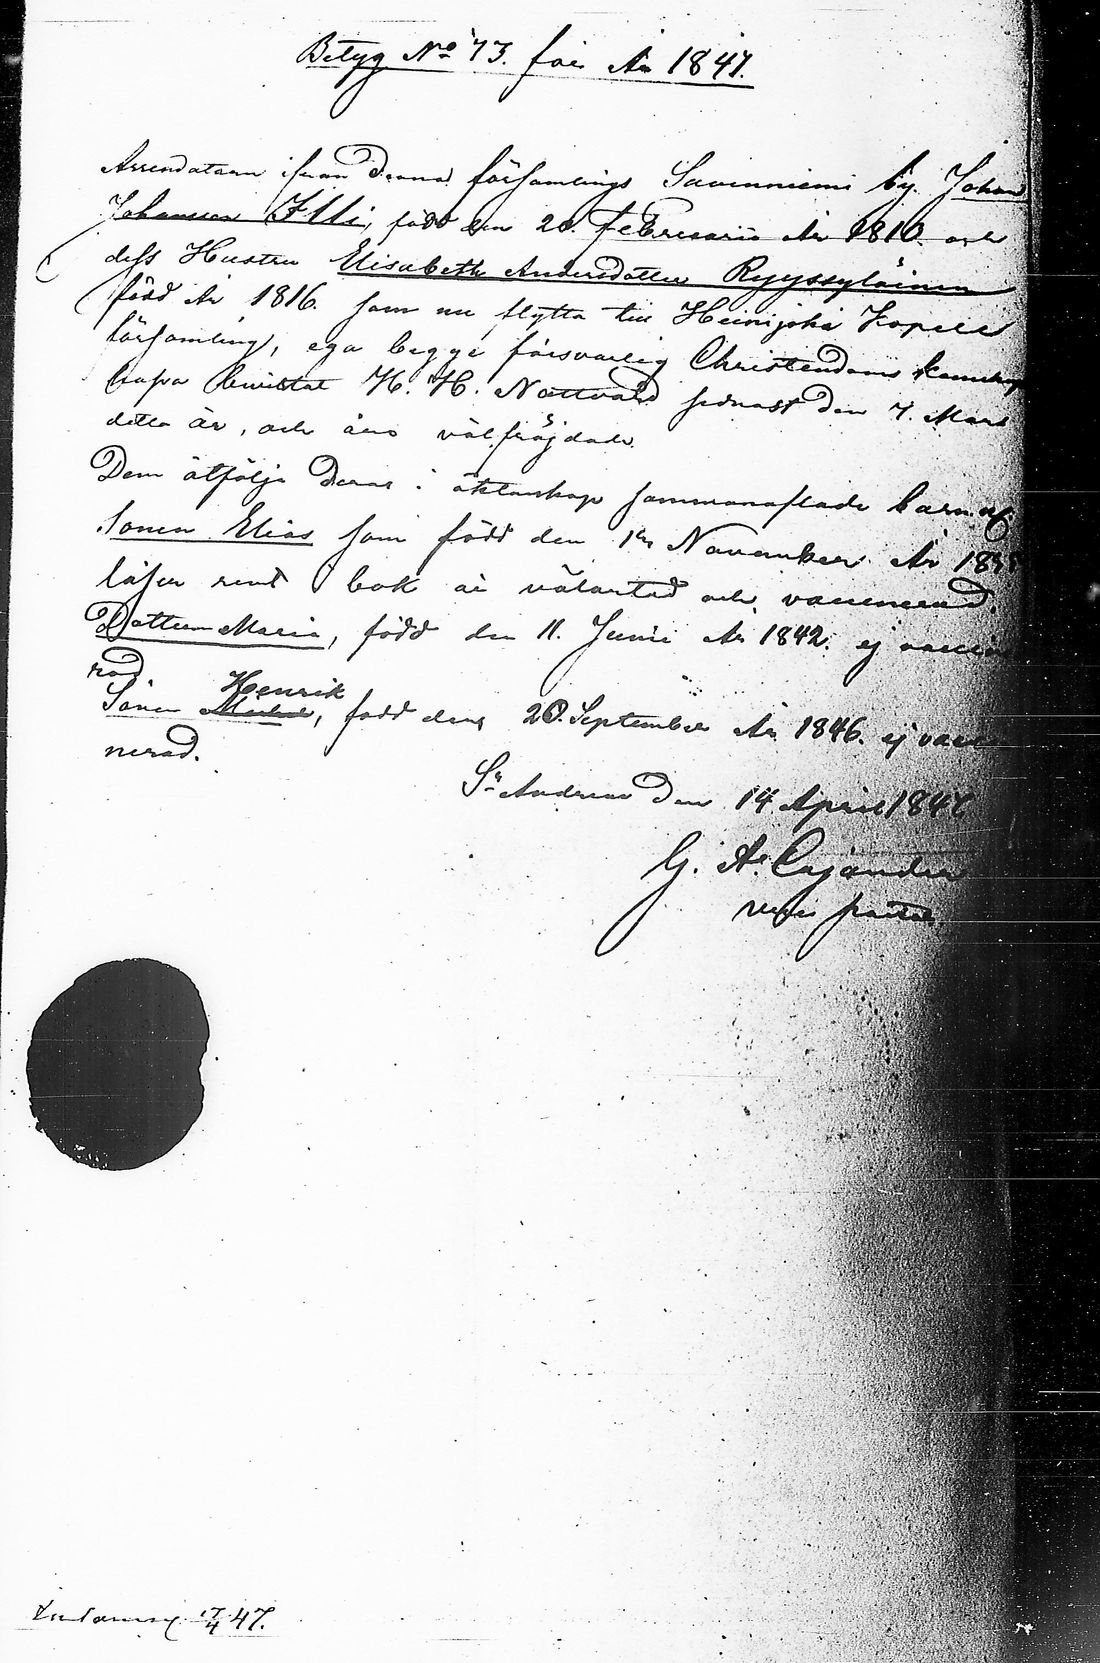 Betyg No 73. för År 1847.
Arrendatorn ifrån denna församlings Savenniemi by Johan
Johansson Illi, född den 20. Februarii År 1810. och
dess Hustru Elisabeth Andersdotter Ryyssyläinen
född År 1816. som nu flytta till Heinjoki Kapell
församling, ega begge försvarlig Christendoms kunskap
hafva bevistat H. H. Nattvard sednast den 7. Mars
detta år, och äro välfräjdade.
Dem åtfölja deras i äktenskap sammanaflade barn
Sonen Elias som född den 1sta November År
läser rent i bok är välartad och vaccinerad.
Dottern Maria, född den 11. Junii År 1842. ej vaccine
rad
Henrik
Sonen, född den 20. September År 1846. ej vacci
nerad.
St Andreae den 14 April 1847
G. A. Cajander
vice pastor
17/4 47.